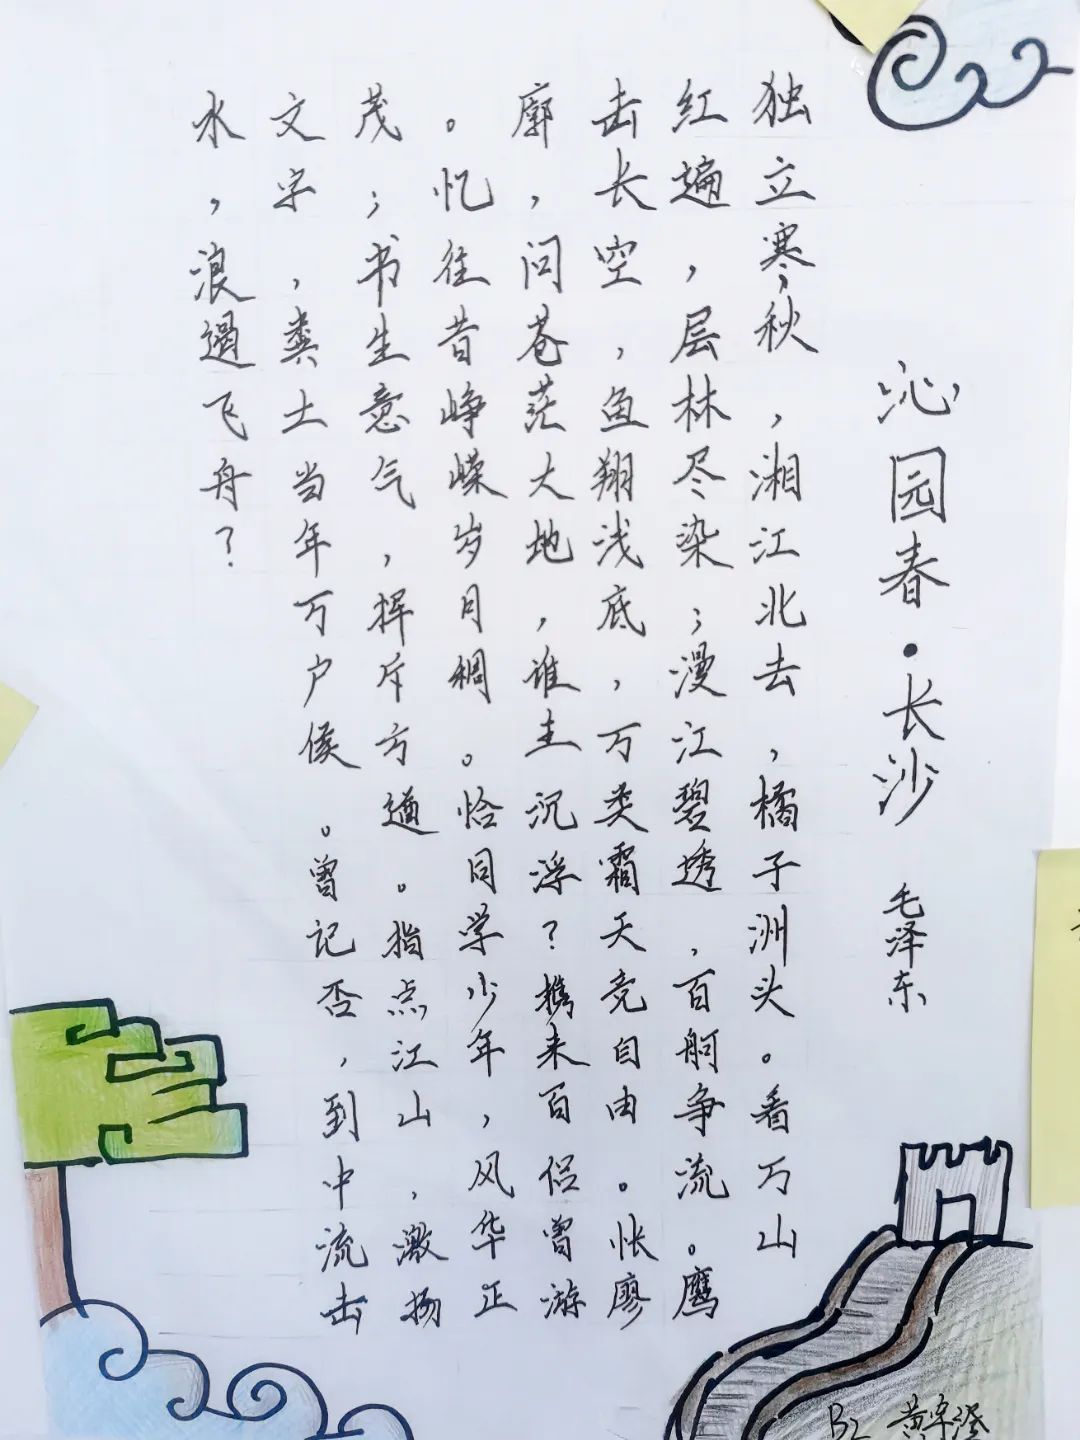 沁园春·长沙
毛泽东
独立寒秋，湘江北去，橘子洲头。看万山
红遍，层林尽染；漫江碧透，百舸争流。鹰
击长空，鱼翔浅底，万类霜天竞自由。怅廖
廓，问苍茫大地，谁主沉浮？携来百侣曾游
。忆往昔峥嵘岁月稠。恰同学少年，风华正
茂；书生意气，挥斥方遒。指点江山，激扬
文字，粪土当年万户侯。曾记否，到中流击
水，浪遏飞舟？
B2